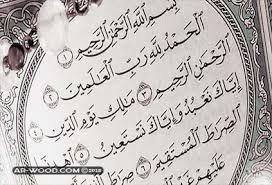 بِسْمِ ٱللَّهِ ٱلرَّحْمَٰنِ ٱلرَّحِيمِ ١
ٱلْحَمْدُ لِلَّهِ رَبِّ ٱلْعَٰلَمِينَ ٢
ٱلرَّحْمَٰنِ ٱلرَّحِيمِ ٣ مَٰلِكِ يَوْمِ ٱلدِّينِ ٤
إِيَّاكَ نَعْبُدُ وَإِيَّاكَ نَسْتَعِينُ ٥ ٱهْدِنَا
ٱلصِّرَٰطَ ٱلْمُسْتَقِيمَ ٦ صِرَٰطَ
عَلَيْهِمْ غَيْرِ
AR-WOOD.COM ©2018